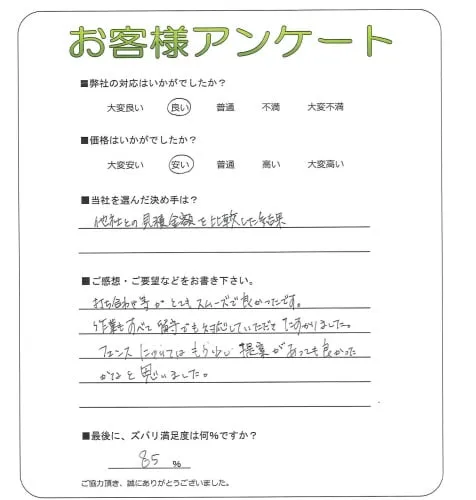 お客様アンケート
■弊社の対応はいかがでしたか？
大変良い 良い 普通 不満 大変不満
■価格はいかがでしたか？
大変安い 安い 普通 高い 大変高い
■当社を選んだ決め手は？
他社との見積金額を比較した結果
■ご感想・ご要望などをお書き下さい。
打ち合わせ等がとてもスムーズで良かったです。
作業もすべて留守でも対応していただきたすかりました。
フェンスについてはもう少し提案があっても良かった
かなと思いました。
■最後に、ズバリ満足度は何％ですか？
85 %
ご協力頂き、誠にありがとうございました。